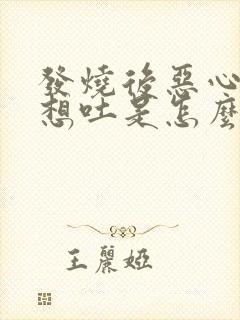 發燒後惡心
想吐是怎麼
王麗婭